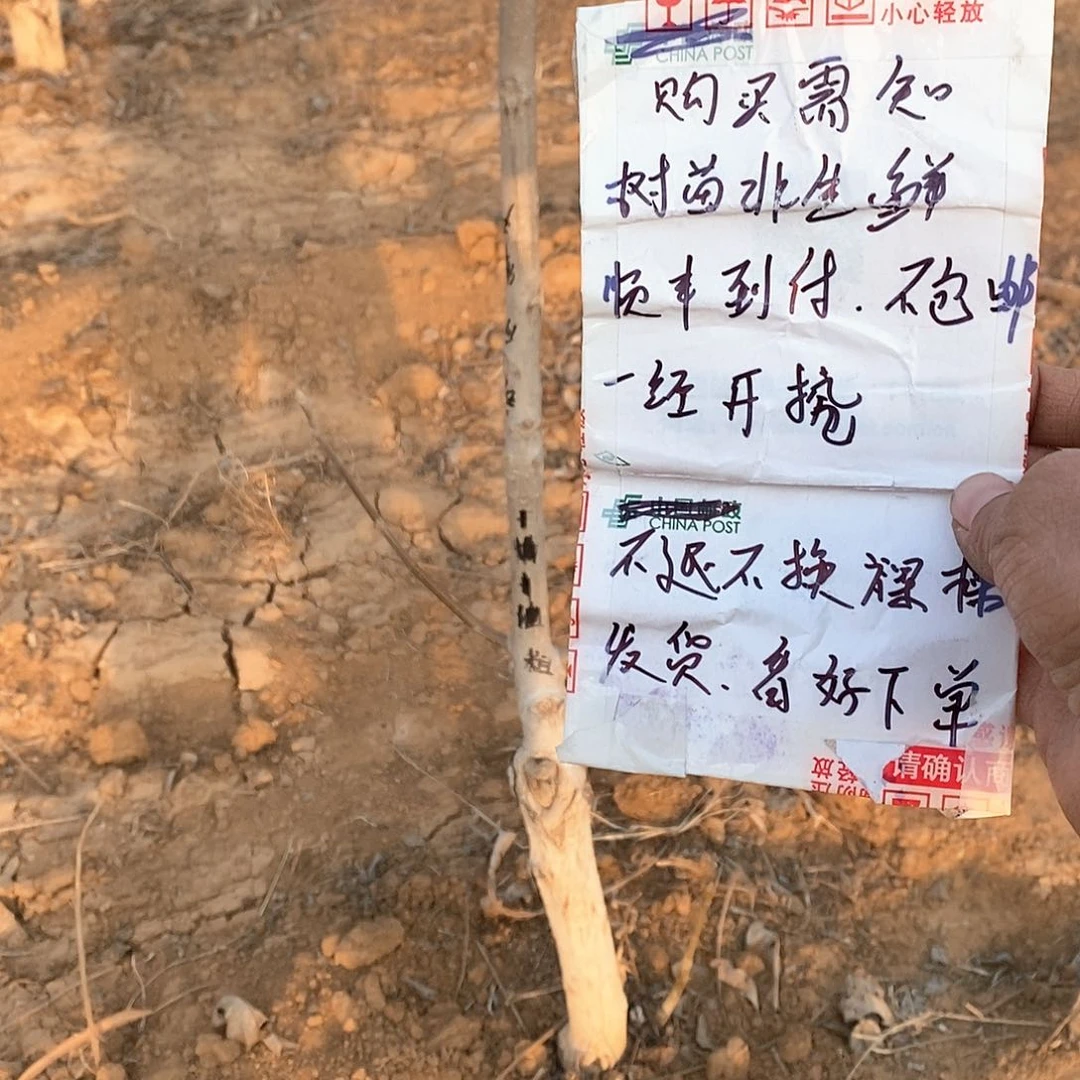 小心轻放
CHINA POST
购买需知
树苗非生鲜
顺丰到付.不包邮
一经开挖
CHINA POST
不退不换裸根
发货.看好下单
请确认商
粗